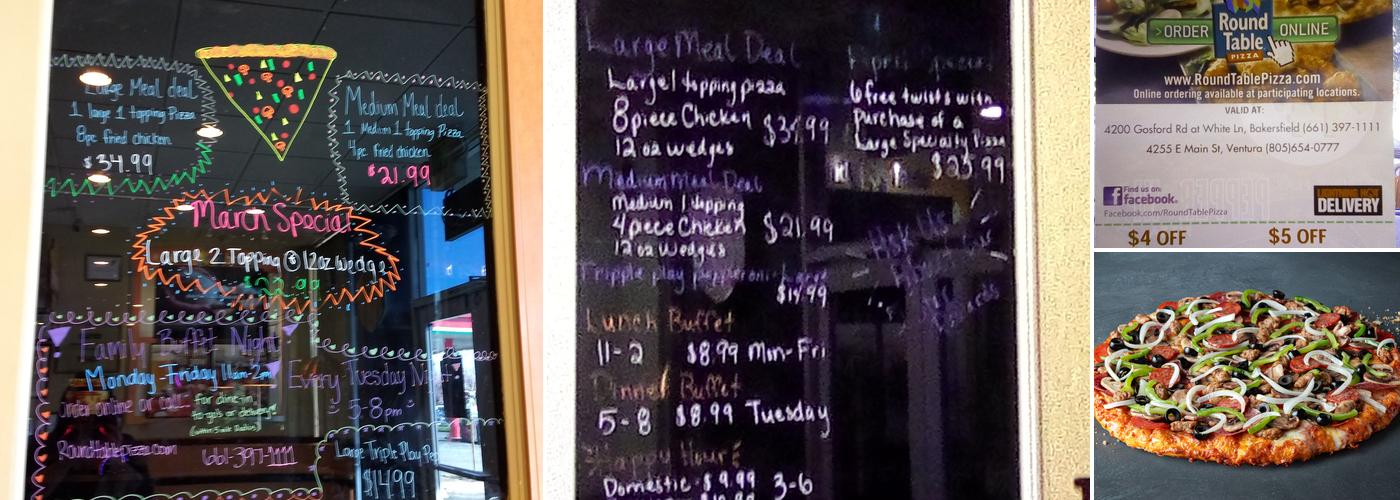 Large Meal deal
1 large 1 topping Pizza
8pc fried chicken
$34.99
Medium Meal deal
1 Medium 1 topping Pizza
4pc fried chicken
$21.99
March Special
Large 2 Topping 12oz wedge
Family Buffet Night
Monday-Friday 11am-2pm
Order online or call
for dine-in,
to-go's or delivery!
RoundtablePizza.com 661-397-1111
Every Tuesday Night
5-8pm
Large Triple Play Pep
$14.99
Large Meal Deal
Large 1 topping pizza
8 piece Chicken $34.99
12 oz wedges
Medium Meal Deal
Medium 1 topping
4 piece Chicken $21.99
12 oz Wedges
Tripple play pepperoni Large
$14.99
Lunch Buffet
11-2 $8.99 Mon-Fri
Dinner Buffet
5-8 $8.99 Tuesday
Happy Hour
Domestic $9.99 3-6
6 free twists with
purchase of a
Large Specialty Pizza
$23.99
>ORDER Round Table PIZZA ONLINE
www.RoundTablePizza.com
Online ordering available at participating locations.
VALID AT:
4200 Gosford Rd at White Ln, Bakersfield (661) 397-1111
4255 E Main St, Ventura (805)654-0777
Find us on:
facebook.
Facebook.com/RoundTablePizza
LIGHTNING FAST
DELIVERY
$4 OFF $5 OFF